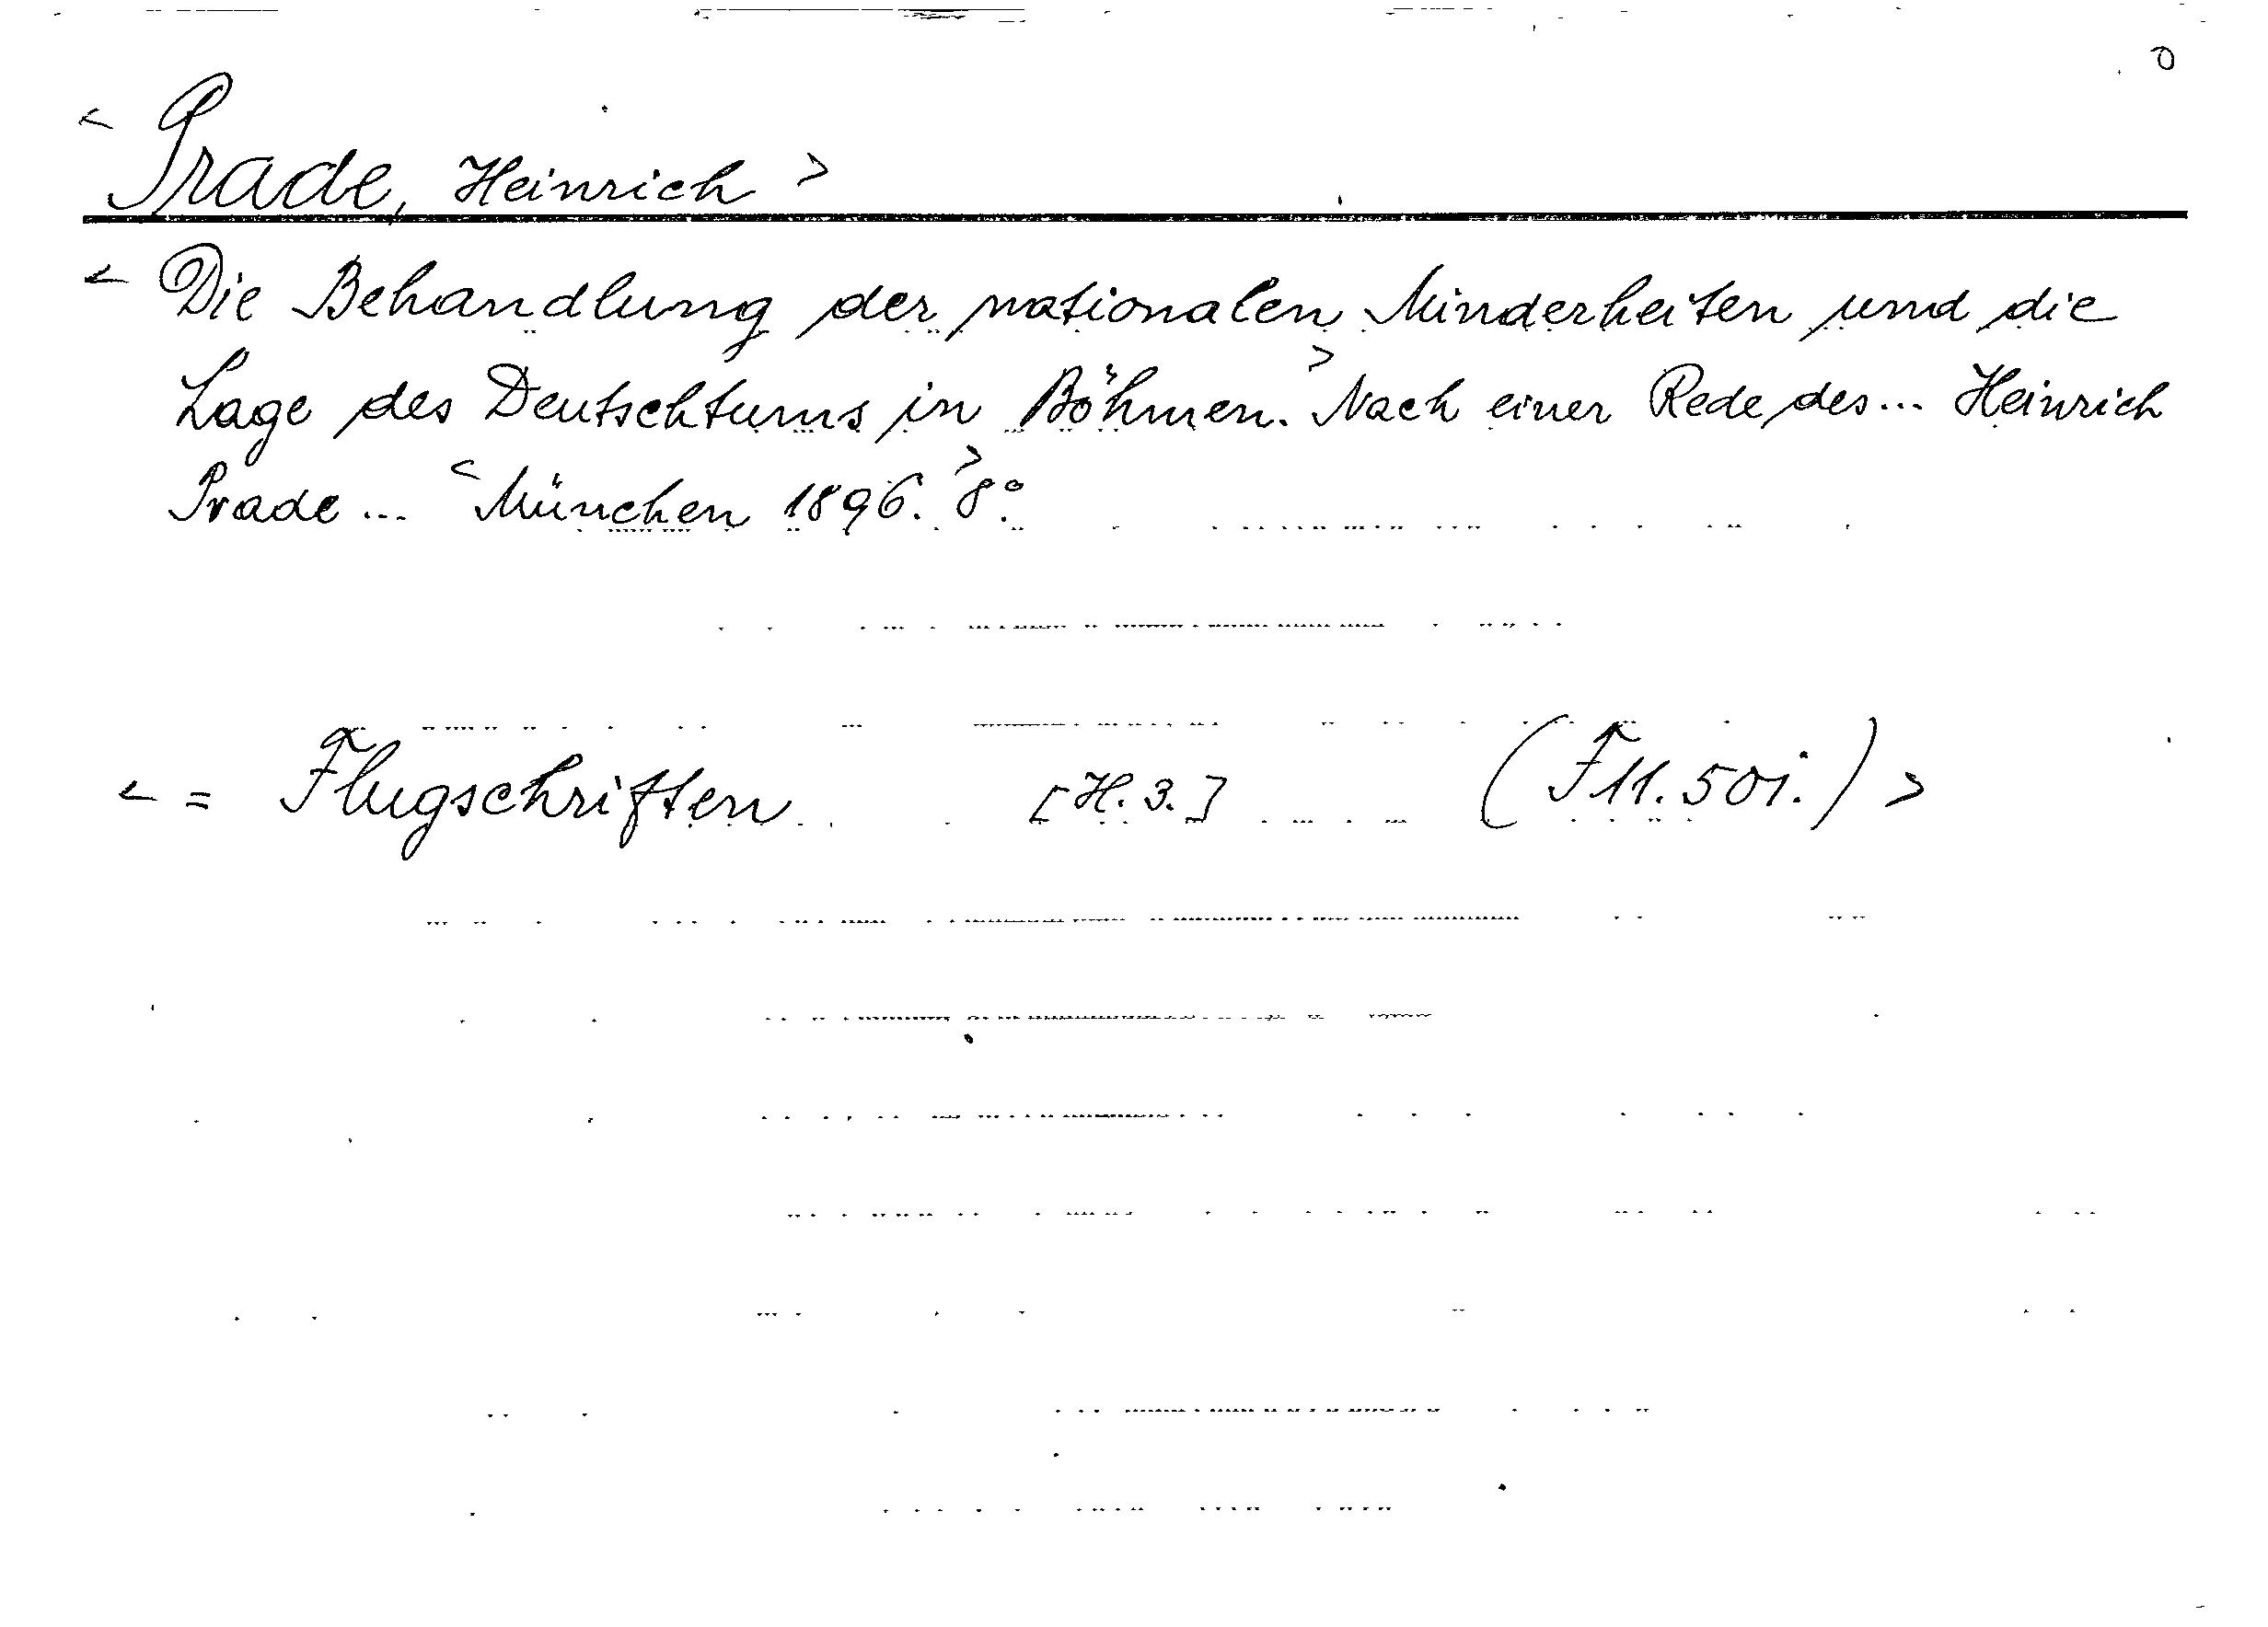 < Prade, Heinrich >
< Die Behandlung der nationalen Minderheiten und die
Lage des Deutschtums in Böhmen. > Nach einer Rede des... Heinrich
Prade ... < München 1896. > 8°.
< = Flugschriften [H. 3.] (F 11. 501.) >